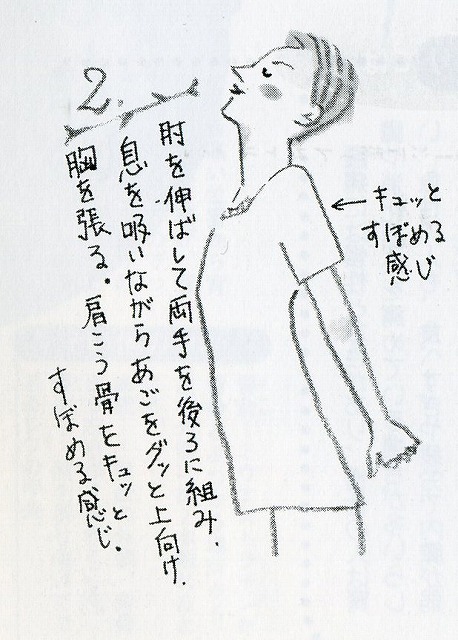 2.
肘を伸ばして両手を後ろに組み.
息を吸いながらあごをグッと上向け.
胸を張る。肩こう骨をキュッと
すぼめる感じ。
←キュッと
すぼめる
感じ